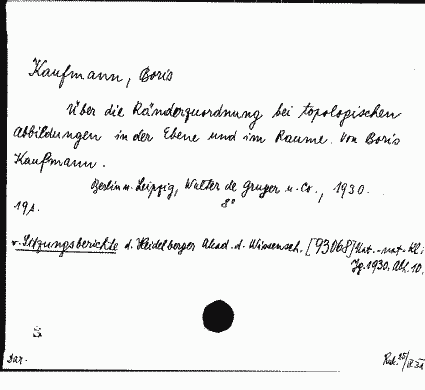 Kaufmann, Boris
Über die Ränderzuordnung bei topologischen
Abbildungen in der Ebene und im Raume. Von Boris
Kaufmann.
Berlin u. Leipzig, Walter de Gruyter u. Co., 1930.
8°
19 p.
v. Sitzungsberichte d. Heidelberger Akad. d. Wissensch. [93068] Mat.-nat. Kl.:
Jg. 1930. Abh. 10.
Dar.